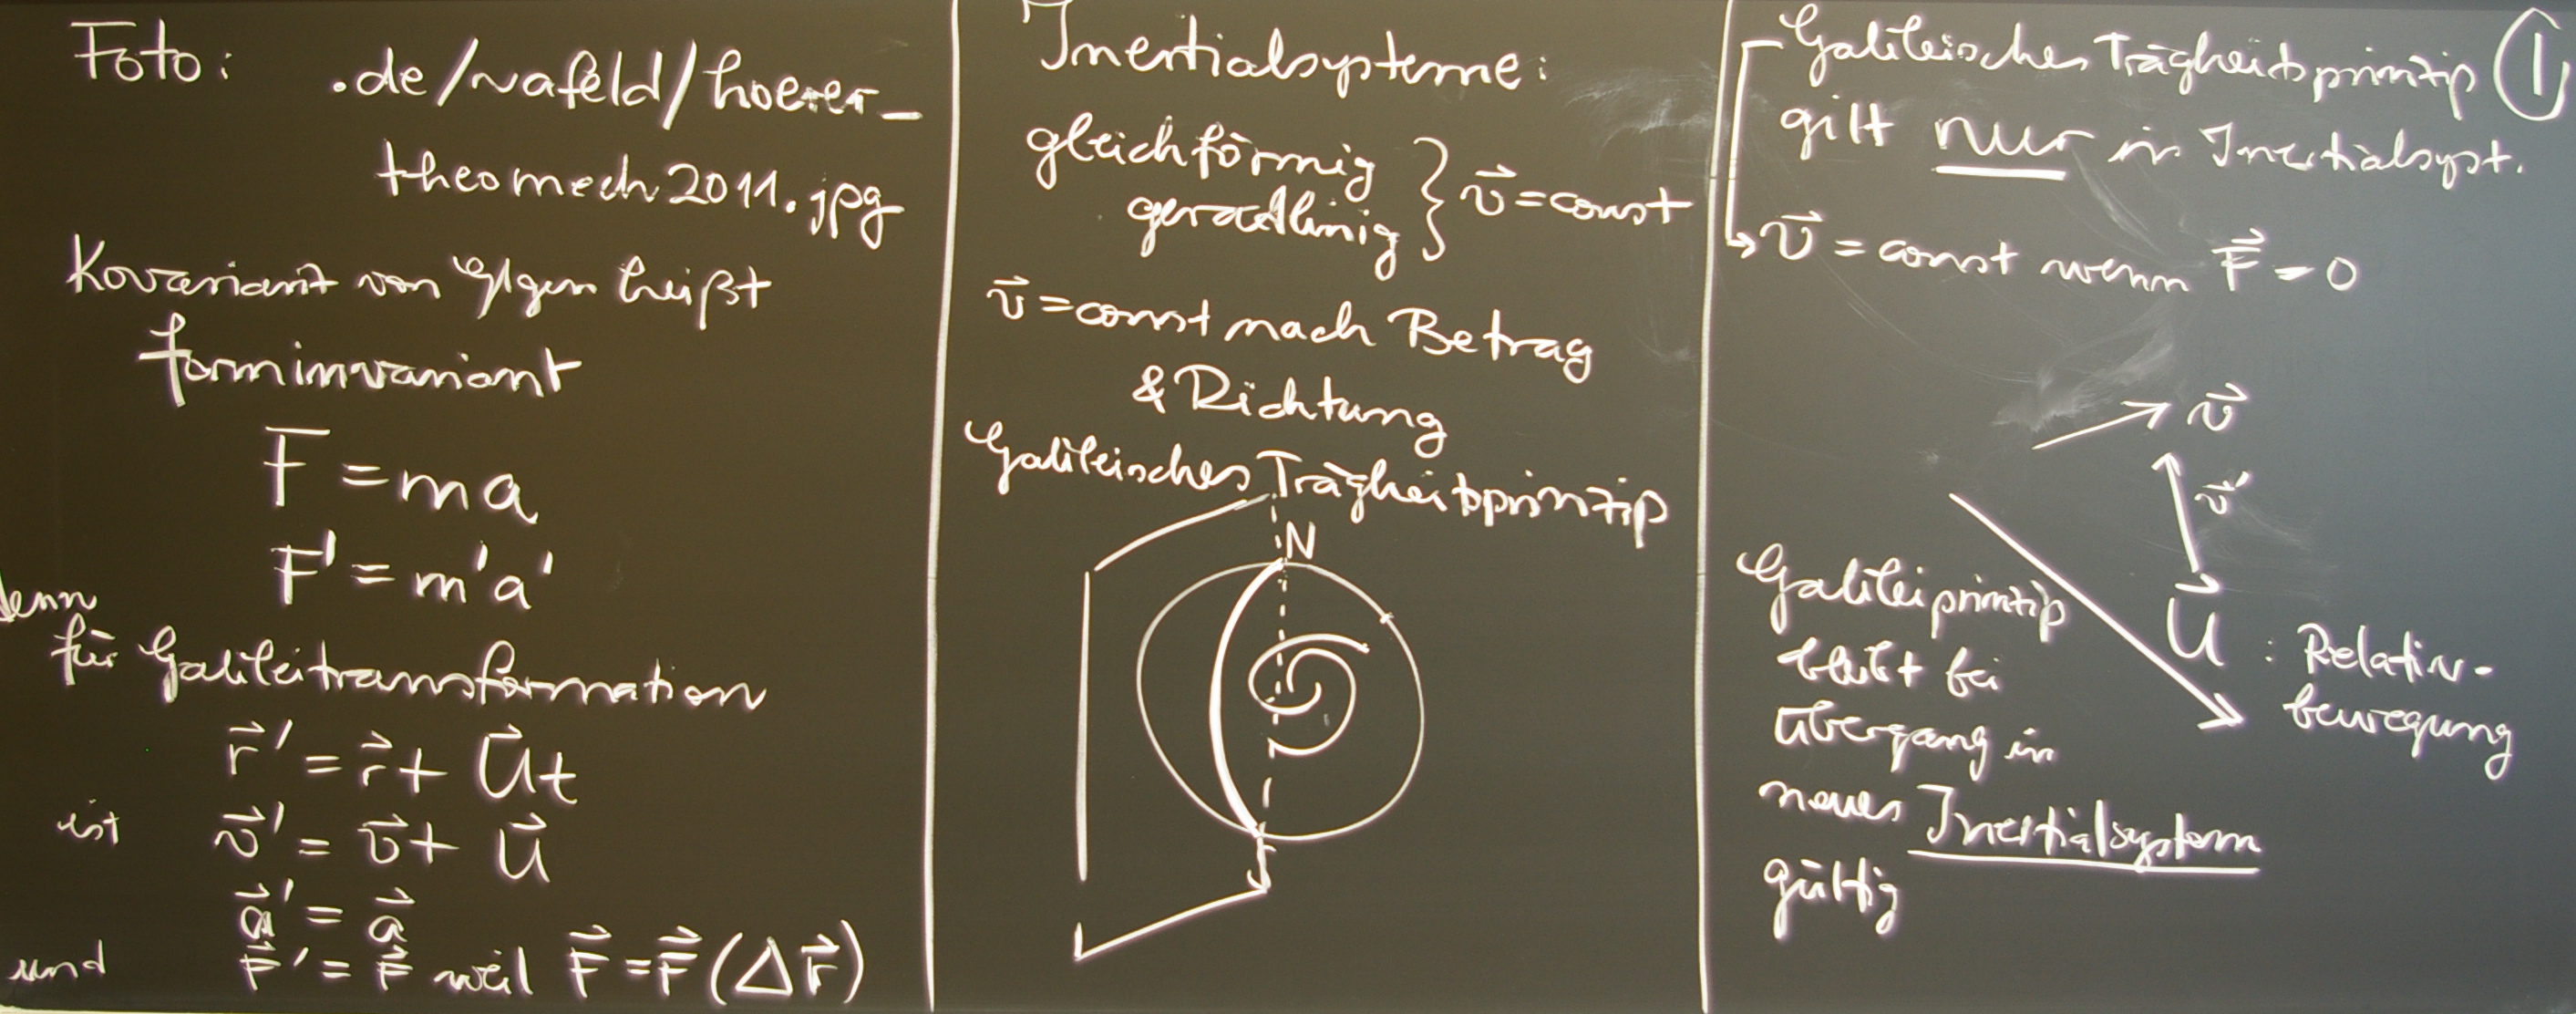 Foto:
.de/vafeld/hoerer_
theomech2011.jpg
Kovariant von Glgen heißt
forminvariant
F = ma
F' = m'a'
denn
für Galileitransformation
r⃗' = r⃗ + U⃗t
ist v⃗' = v⃗ + U⃗
a⃗' = a⃗
und F⃗' = F⃗ weil F⃗ = F⃗(Δr⃗)
Inertialsysteme:
gleichförmig
geradlinig } v⃗ = const
v⃗ = const nach Betrag
& Richtung
Galileisches Trägheitsprinzip
N
Galileisches Trägheitsprinzip
1
gilt nur in Inertialsyst.
v⃗ = const wenn F⃗ = 0
v⃗
v⃗'
U⃗ : Relativ-
bewegung
Galileiprinzip
bleibt bei
Übergang in
neues Inertialsystem
gültig